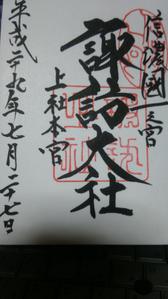 信濃國一之宮
諏訪大社
上社本宮
平成二十九年七月二十七日